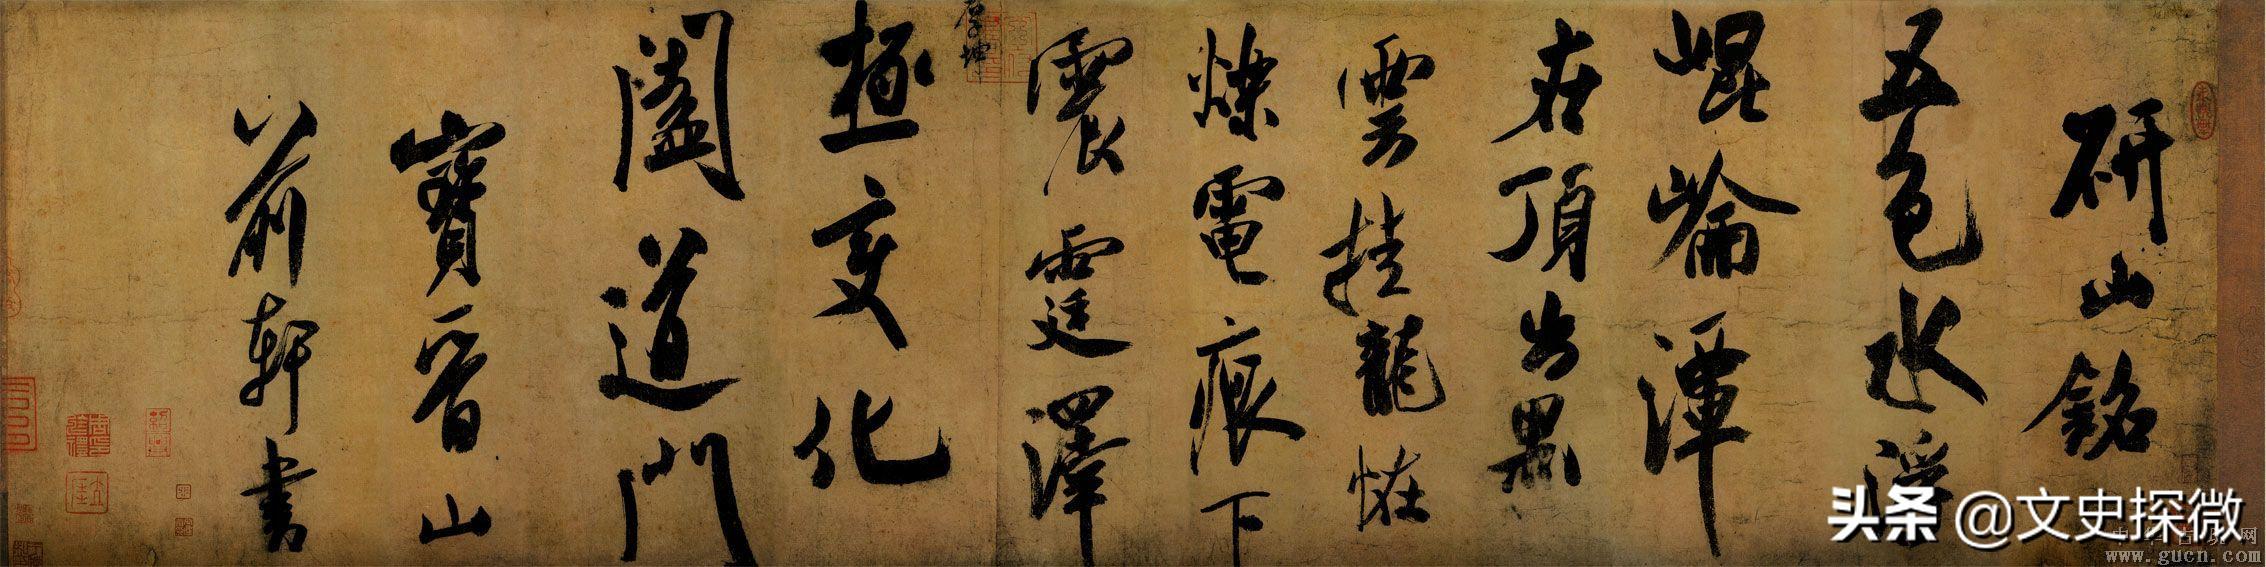 研山銘
五色水浮
崐崘潭
在頂出黑
雲挂龍怪
爍電痕下
震霆澤
厚坤
極變化
闔道門
寶晉山
前軒書
头条 @文史探微
中华古玩网
www.gucn.com